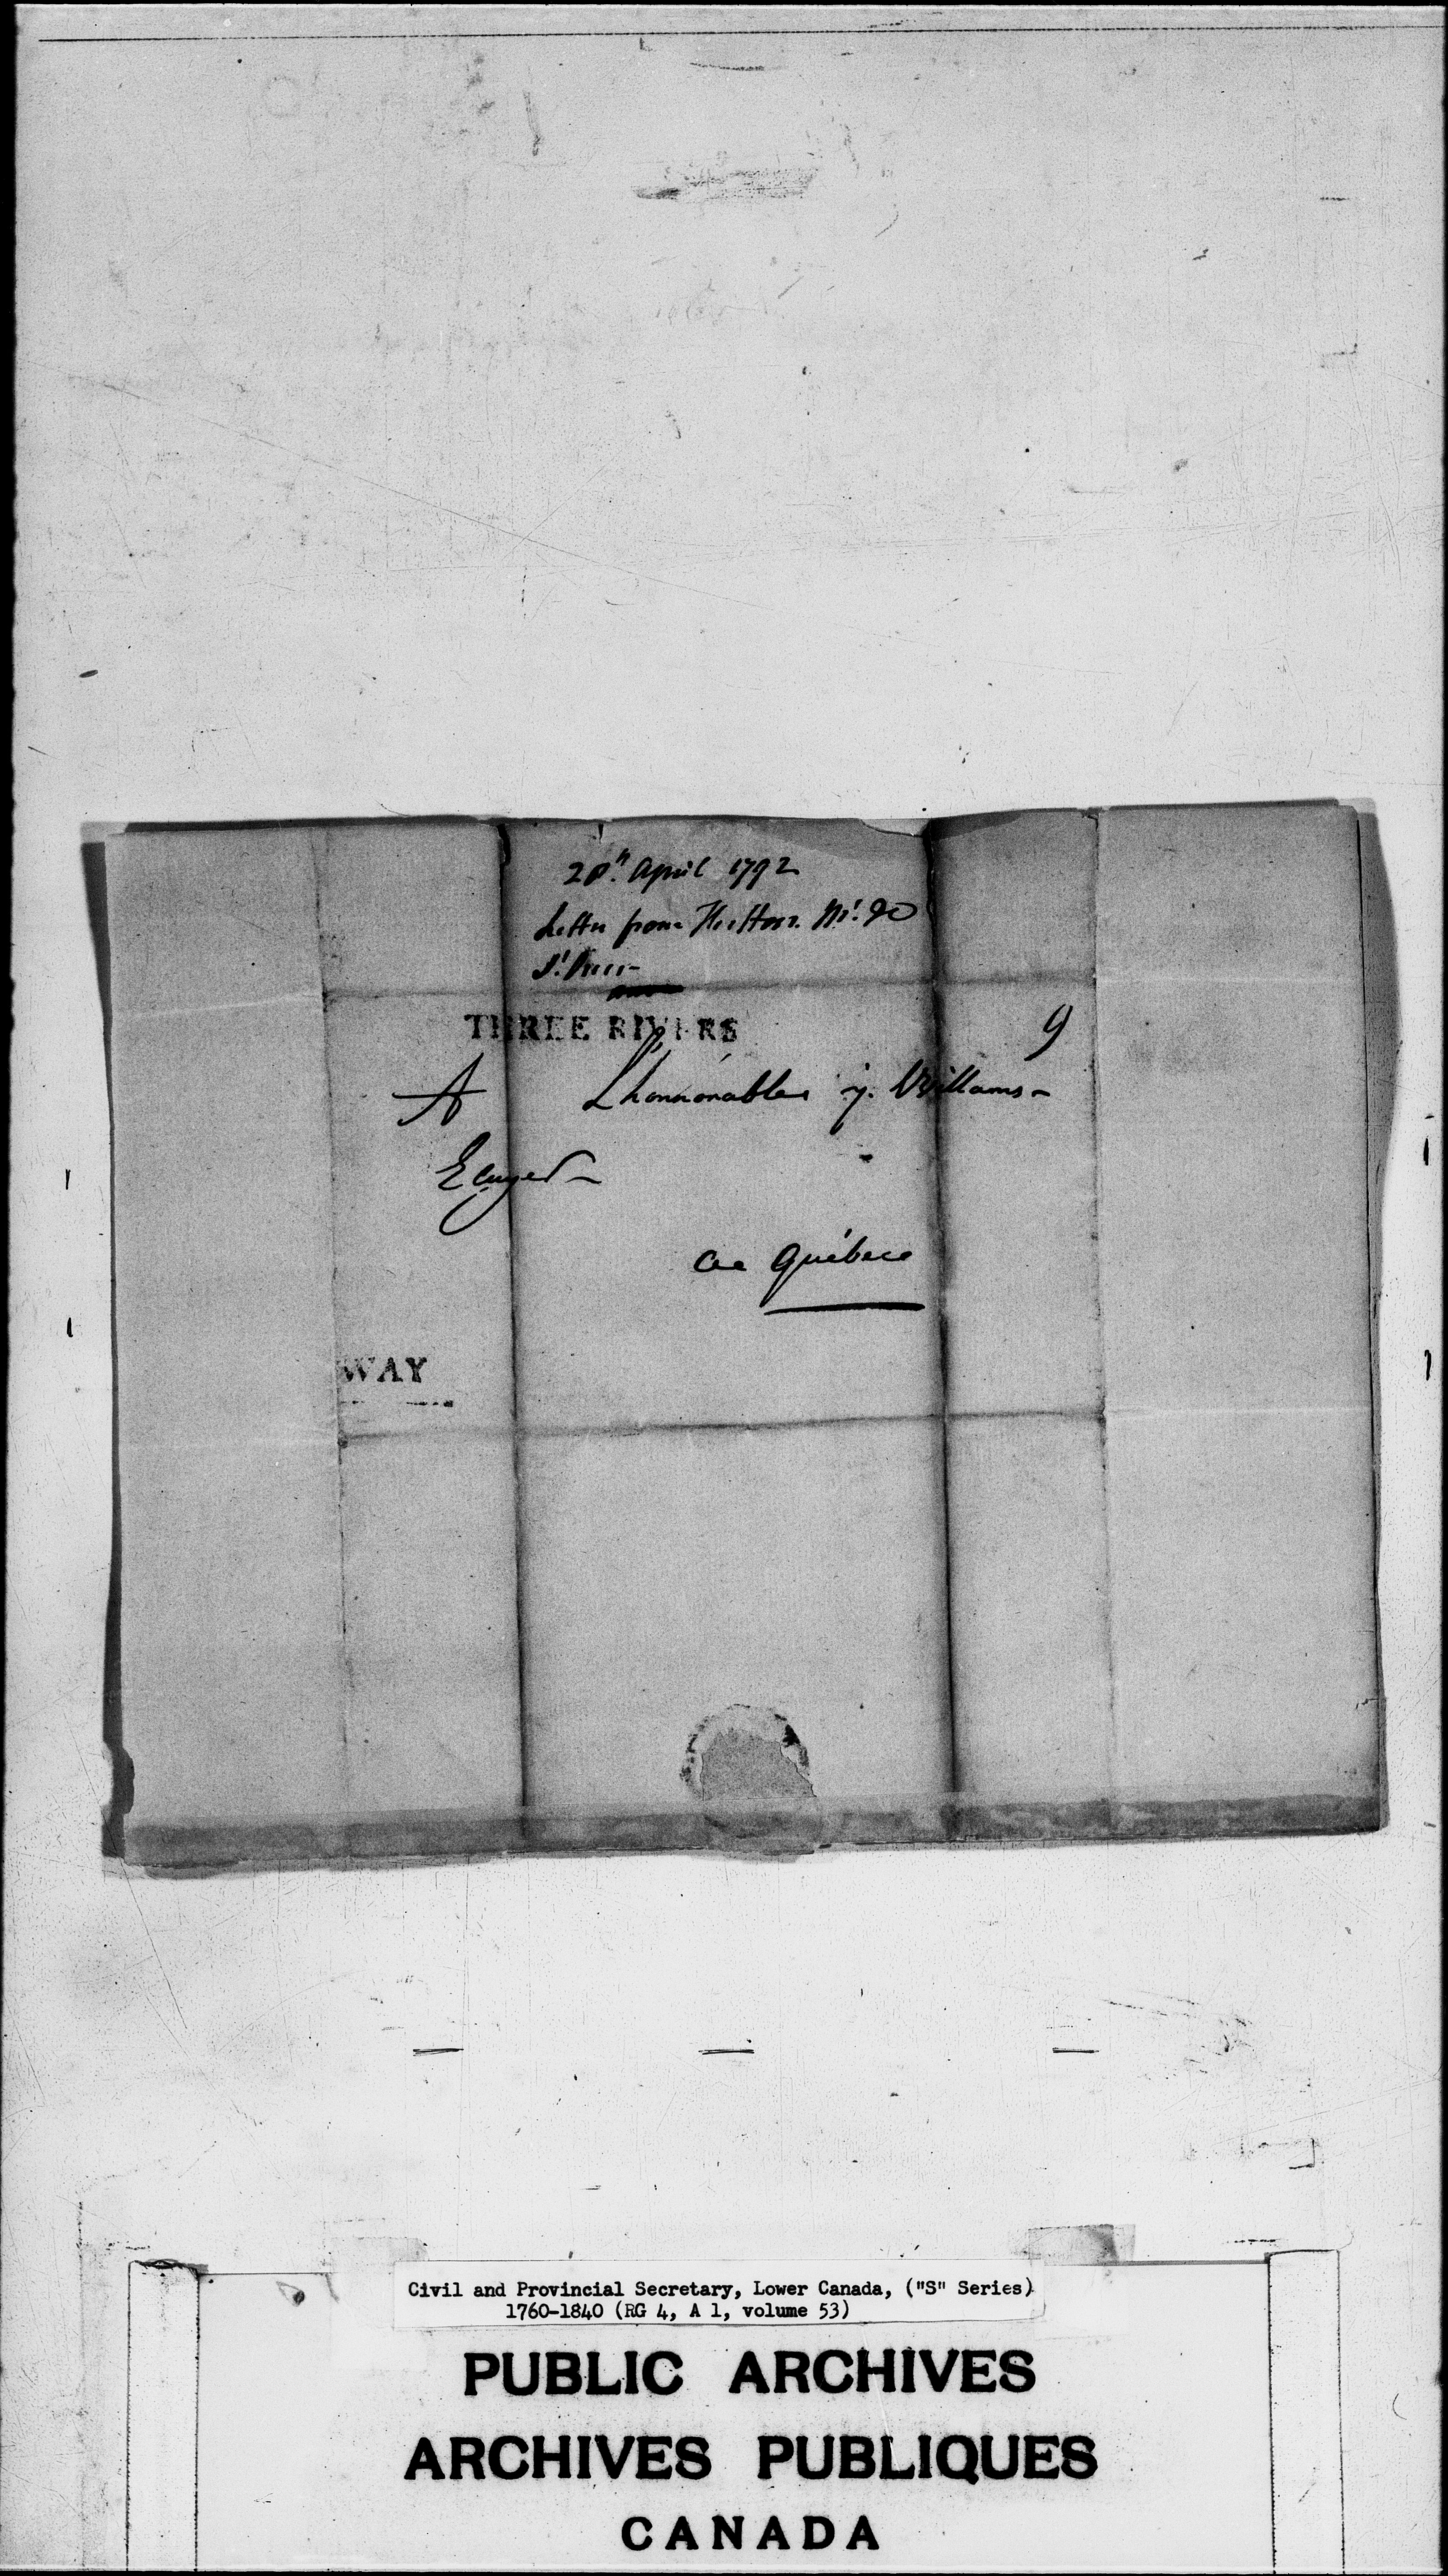 28th. April 1792
Letter from The Hon. Mr. De
St. Ours
THREE RIVERS
9
A Lhonnorable j. Willams
Ecuyer
a Québece
WAY
Civil and Provincial Secretary, Lower Canada, ("S" Series)
1760-1840 (RG 4, A 1, volume 53)
PUBLIC ARCHIVES
ARCHIVES PUBLIQUES
CANADA